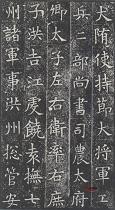 大隋使持節大將軍工
兵二部尚書司農太府
卿太子左右衛率右庶
子洪吉江虔饒袁撫七
州諸軍事洪州揔管安